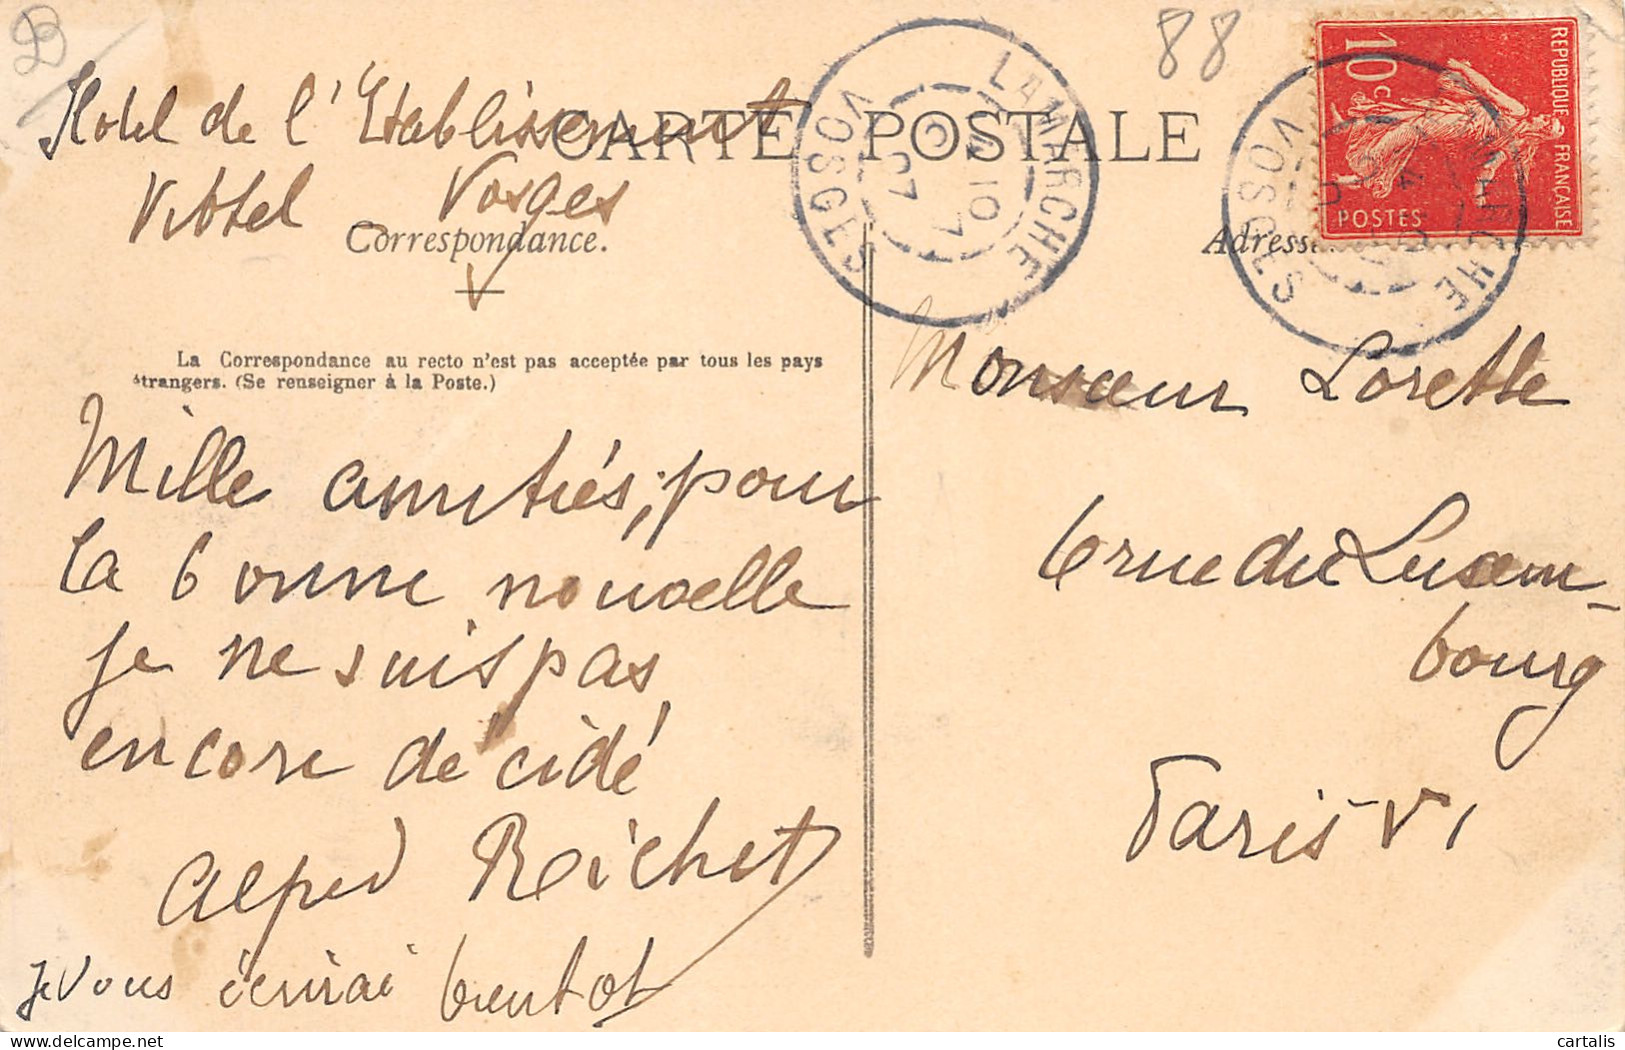 88
Hotel de l'Etablissement
Vittel Vosges
CARTE POSTALE
Correspondance.
Adresse
LAMARCHE
VOSGES
10
07
LAMARCHE
VOSGES
REPUBLIQUE FRANÇAISE
10c
POSTES
La Correspondance au recto n'est pas acceptée par tous les pays
étrangers. (Se renseigner à la Poste.)
Mille amitiés, pour
la bonne nouvelle
je ne suis pas
encore décidé
Alfred Reichet
je vous écrirai bientot
Monsieur Lorette
6 rue du Luxem-
bourg
Paris VI
cartalis
delcampe.net